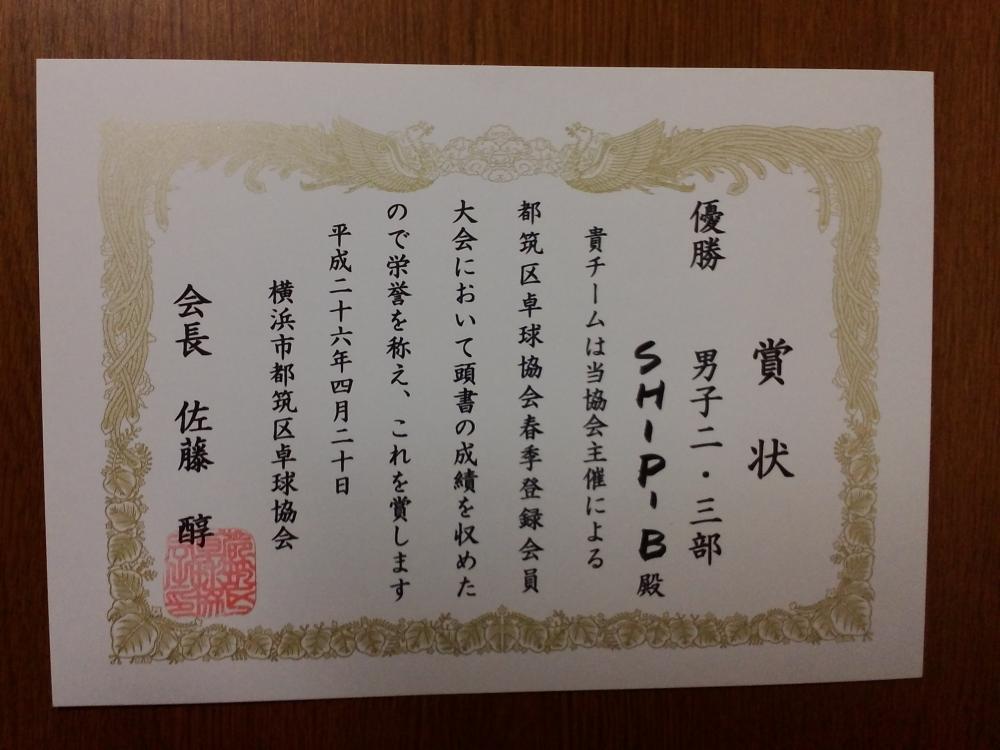 賞状
優勝 男子二・三部
SHIP-B殿
貴チームは当協会主催による
都筑区卓球協会春季登録会員
大会において頭書の成績を収めた
ので栄誉を称え、これを賞します
平成二十六年四月二十日
横浜市都筑区卓球協会
会長 佐藤 醇